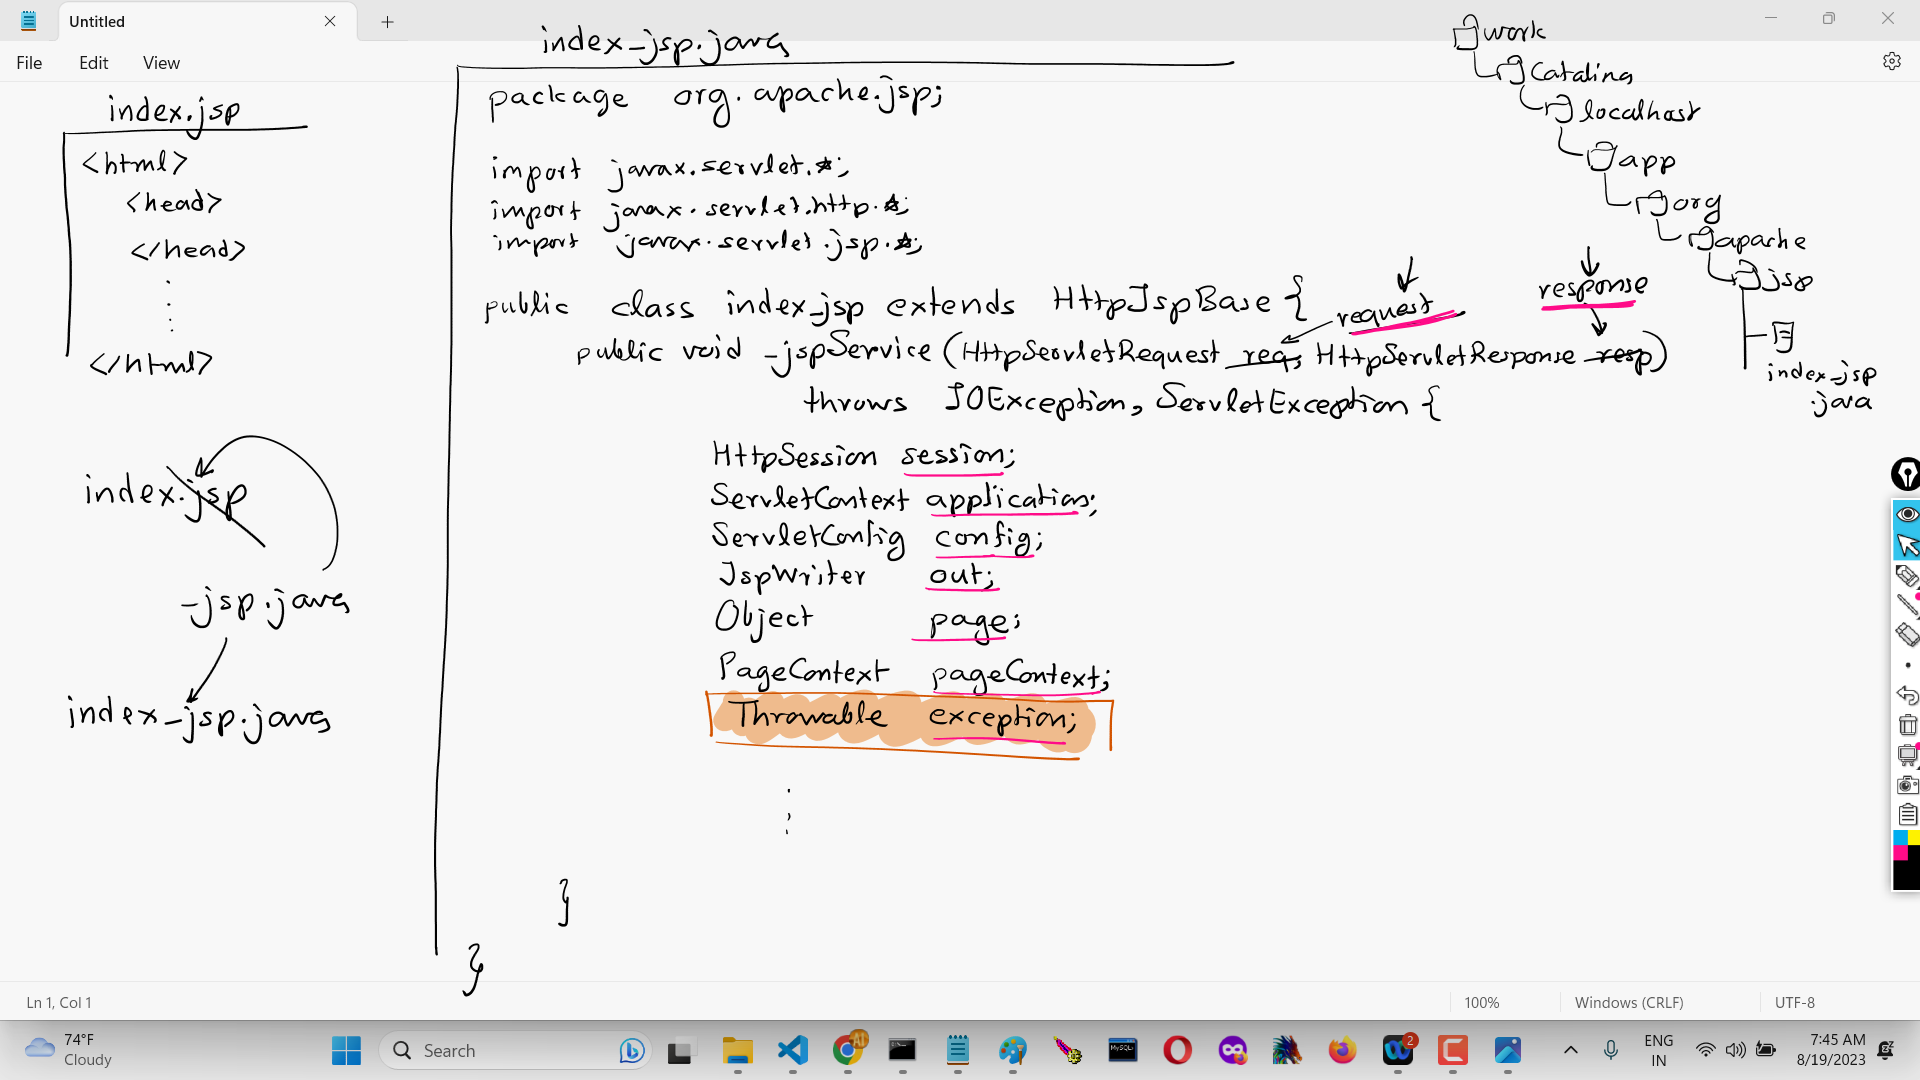 Untitled
File Edit View
index.jsp
<html>
<head>
</head>
</html>
index.jsp
_jsp.java
index_jsp.java
index_jsp.java
package org.apache.jsp;
import javax.servlet.*;
import javax.servlet.http.*;
import javax.servlet.jsp.*;
public class index_jsp extends HttpJspBase {
request
response
public void _jspService (HttpServletRequest req, HttpServletResponse resp)
throws IOException, ServletException {
HttpSession session;
ServletContext application;
ServletConfig config;
JspWriter out;
Object page;
PageContext pageContext;
Throwable exception;
}
}
work
Catalina
localhost
app
org
apache
jsp
index_jsp
.java
Ln 1, Col 1
100%
Windows (CRLF)
UTF-8
74°F
Cloudy
Search
AI
MySQL
2
ENG
IN
7:45 AM
8/19/2023